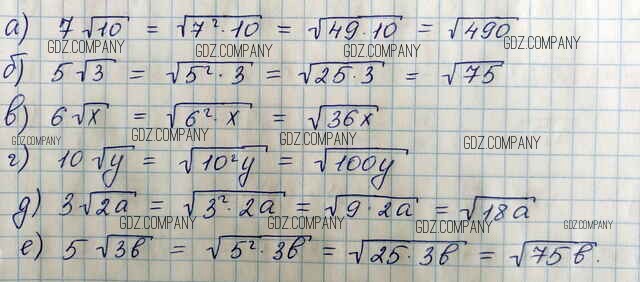 а) 7√10 = √7²·10 = √49·10 = √490
GDZ.COMPANY GDZ.COMPANY GDZ.COMPANY GDZ.COMPANY
б) 5√3 = √5²·3 = √25·3 = √75
в) 6√x = √6²·x = √36x
GDZ.COMPANY GDZ.COMPANY GDZ.COMPANY GDZ.COMPANY
г) 10√y = √10²y = √100y
д) 3√2a = √3²·2a = √9·2a = √18a
GDZ.COMPANY GDZ.COMPANY GDZ.COMPANY GDZ.COMPANY
е) 5√3в = √5²·3в = √25·3в = √75в.